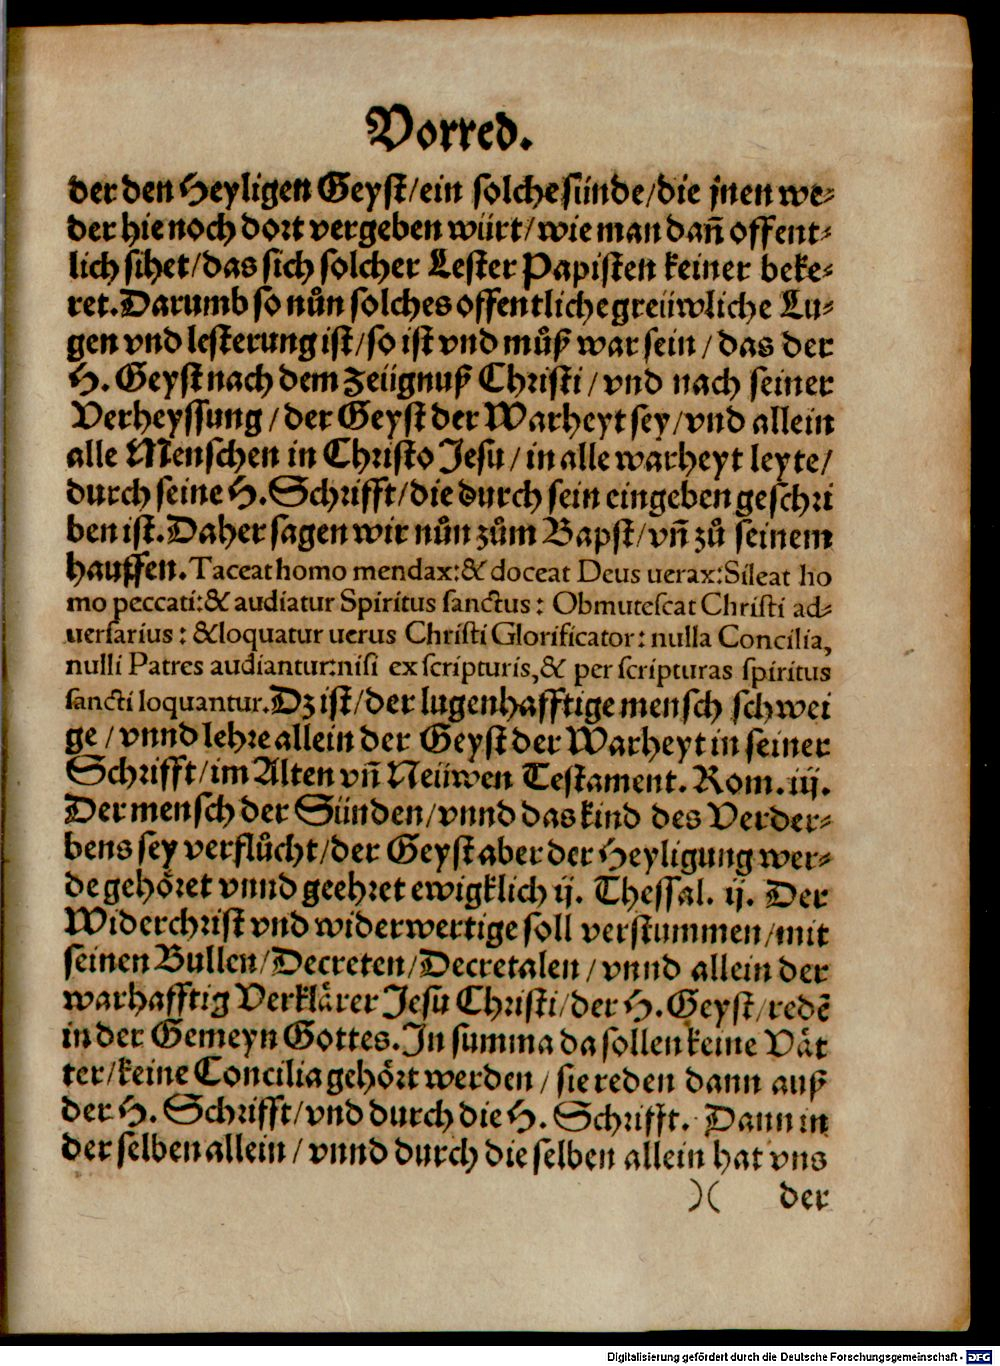 Vorred.
der den Heyligen Geyst/ein solche sünde/die jnen we-
der hie noch dort vergeben würt/wie man dañ offent-
lich sihet/das sich solcher Lester Papisten keiner beke-
ret. Darumb so nůn solches offentliche greüwliche Lu-
gen vnd lesterung ist/so ist vnd můß war sein/das der
H. Geyst nach dem zeügnuß Christi/vnd nach seiner
Verheyssung/der Geyst der Warheyt sey/vnd allein
alle Menschen in Christo Jesu/in alle warheyt leyte/
durch seine H. Schrifft/die durch sein eingeben geschri
ben ist. Daher sagen wir nůn zům Bapst/vñ zů seinem
hauffen. Taceat homo mendax:& doceat Deus uerax:Sileat ho
mo peccati:& audiatur Spiritus sanctus: Obmutescat Christi ad-
uersarius: & loquatur uerus Christi Glorificator: nulla Concilia,
nulli Patres audiantur:nisi ex scripturis,& per scripturas spiritus
sancti loquantur. Dz ist/der lugenhafftige mensch schwei
ge/vnnd lehre allein der Geyst der Warheyt in seiner
Schrifft/im Alten vñ Neüwen Testament. Rom. iij.
Der mensch der Sünden/vnnd das kind des Verder-
bens sey verflůcht/der Geyst aber der Heyligung wer-
de gehöret vnnd geehret ewigklich ij. Thessal. ij. Der
Widerchrist vnd widerwertige soll verstummen/mit
seinen Bullen/Decreten/Decretalen/vnnd allein der
warhafftig Verklärer Jesu Christi/der H. Geyst/redē
in der Gemeyn Gottes. In summa da sollen keine Vät
ter/keine Concilia gehört werden/sie reden dann auß
der H. Schrifft/vnd durch die H. Schrifft. Dann in
der selben allein/vnnd durch die selben allein hat vns
)( der
Digitalisierung gefördert durch die Deutsche Forschungsgemeinschaft - DFG